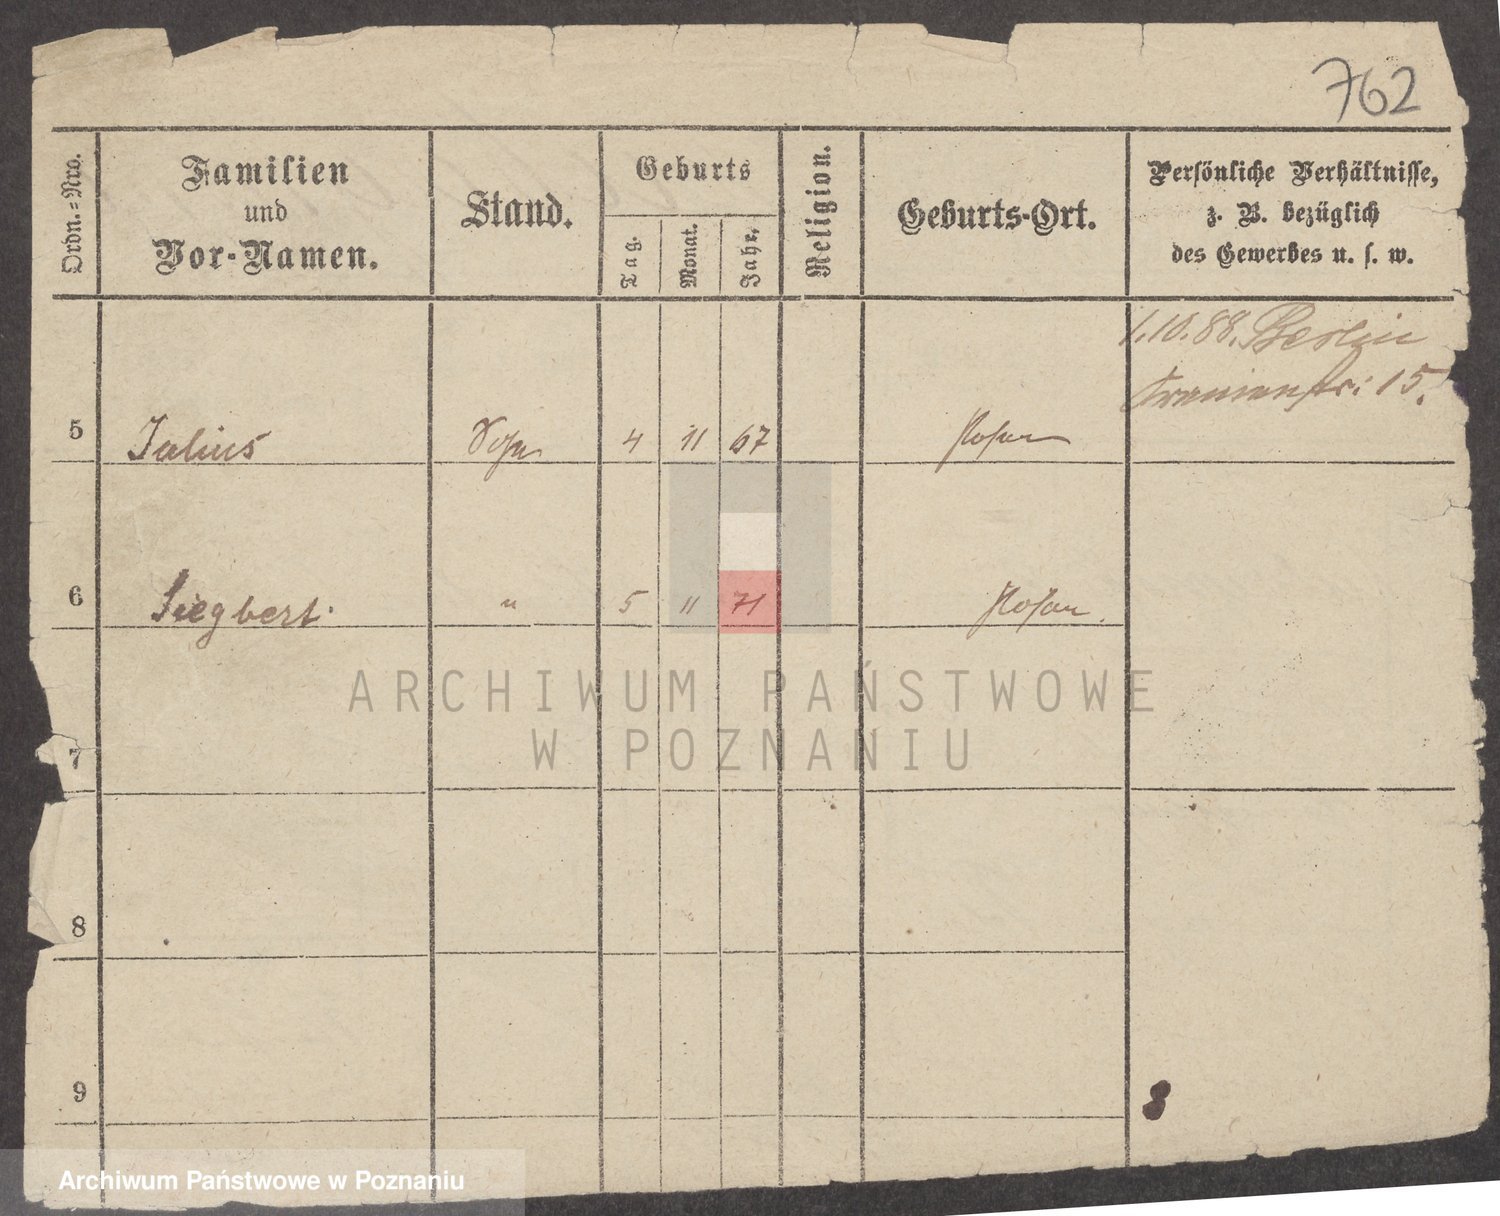 762
Ordn.-Nro.
Familien
und
Vor-Namen.
Stand.
Geburts
Tag.
Monat.
Jahr.
Religion.
Geburts-Ort.
Persönliche Verhältnisse,
z. B. bezüglich
des Gewerbes u. s. w.
1.10.88. Berlin
Oranienstr: 15.
5 Julius Sohn 4 11 67 Posen
6 Siegbert " 5 11 71 Posen.
ARCHIWUM PAŃSTWOWE
W POZNANIU
7
8
9
Archiwum Państwowe w Poznaniu